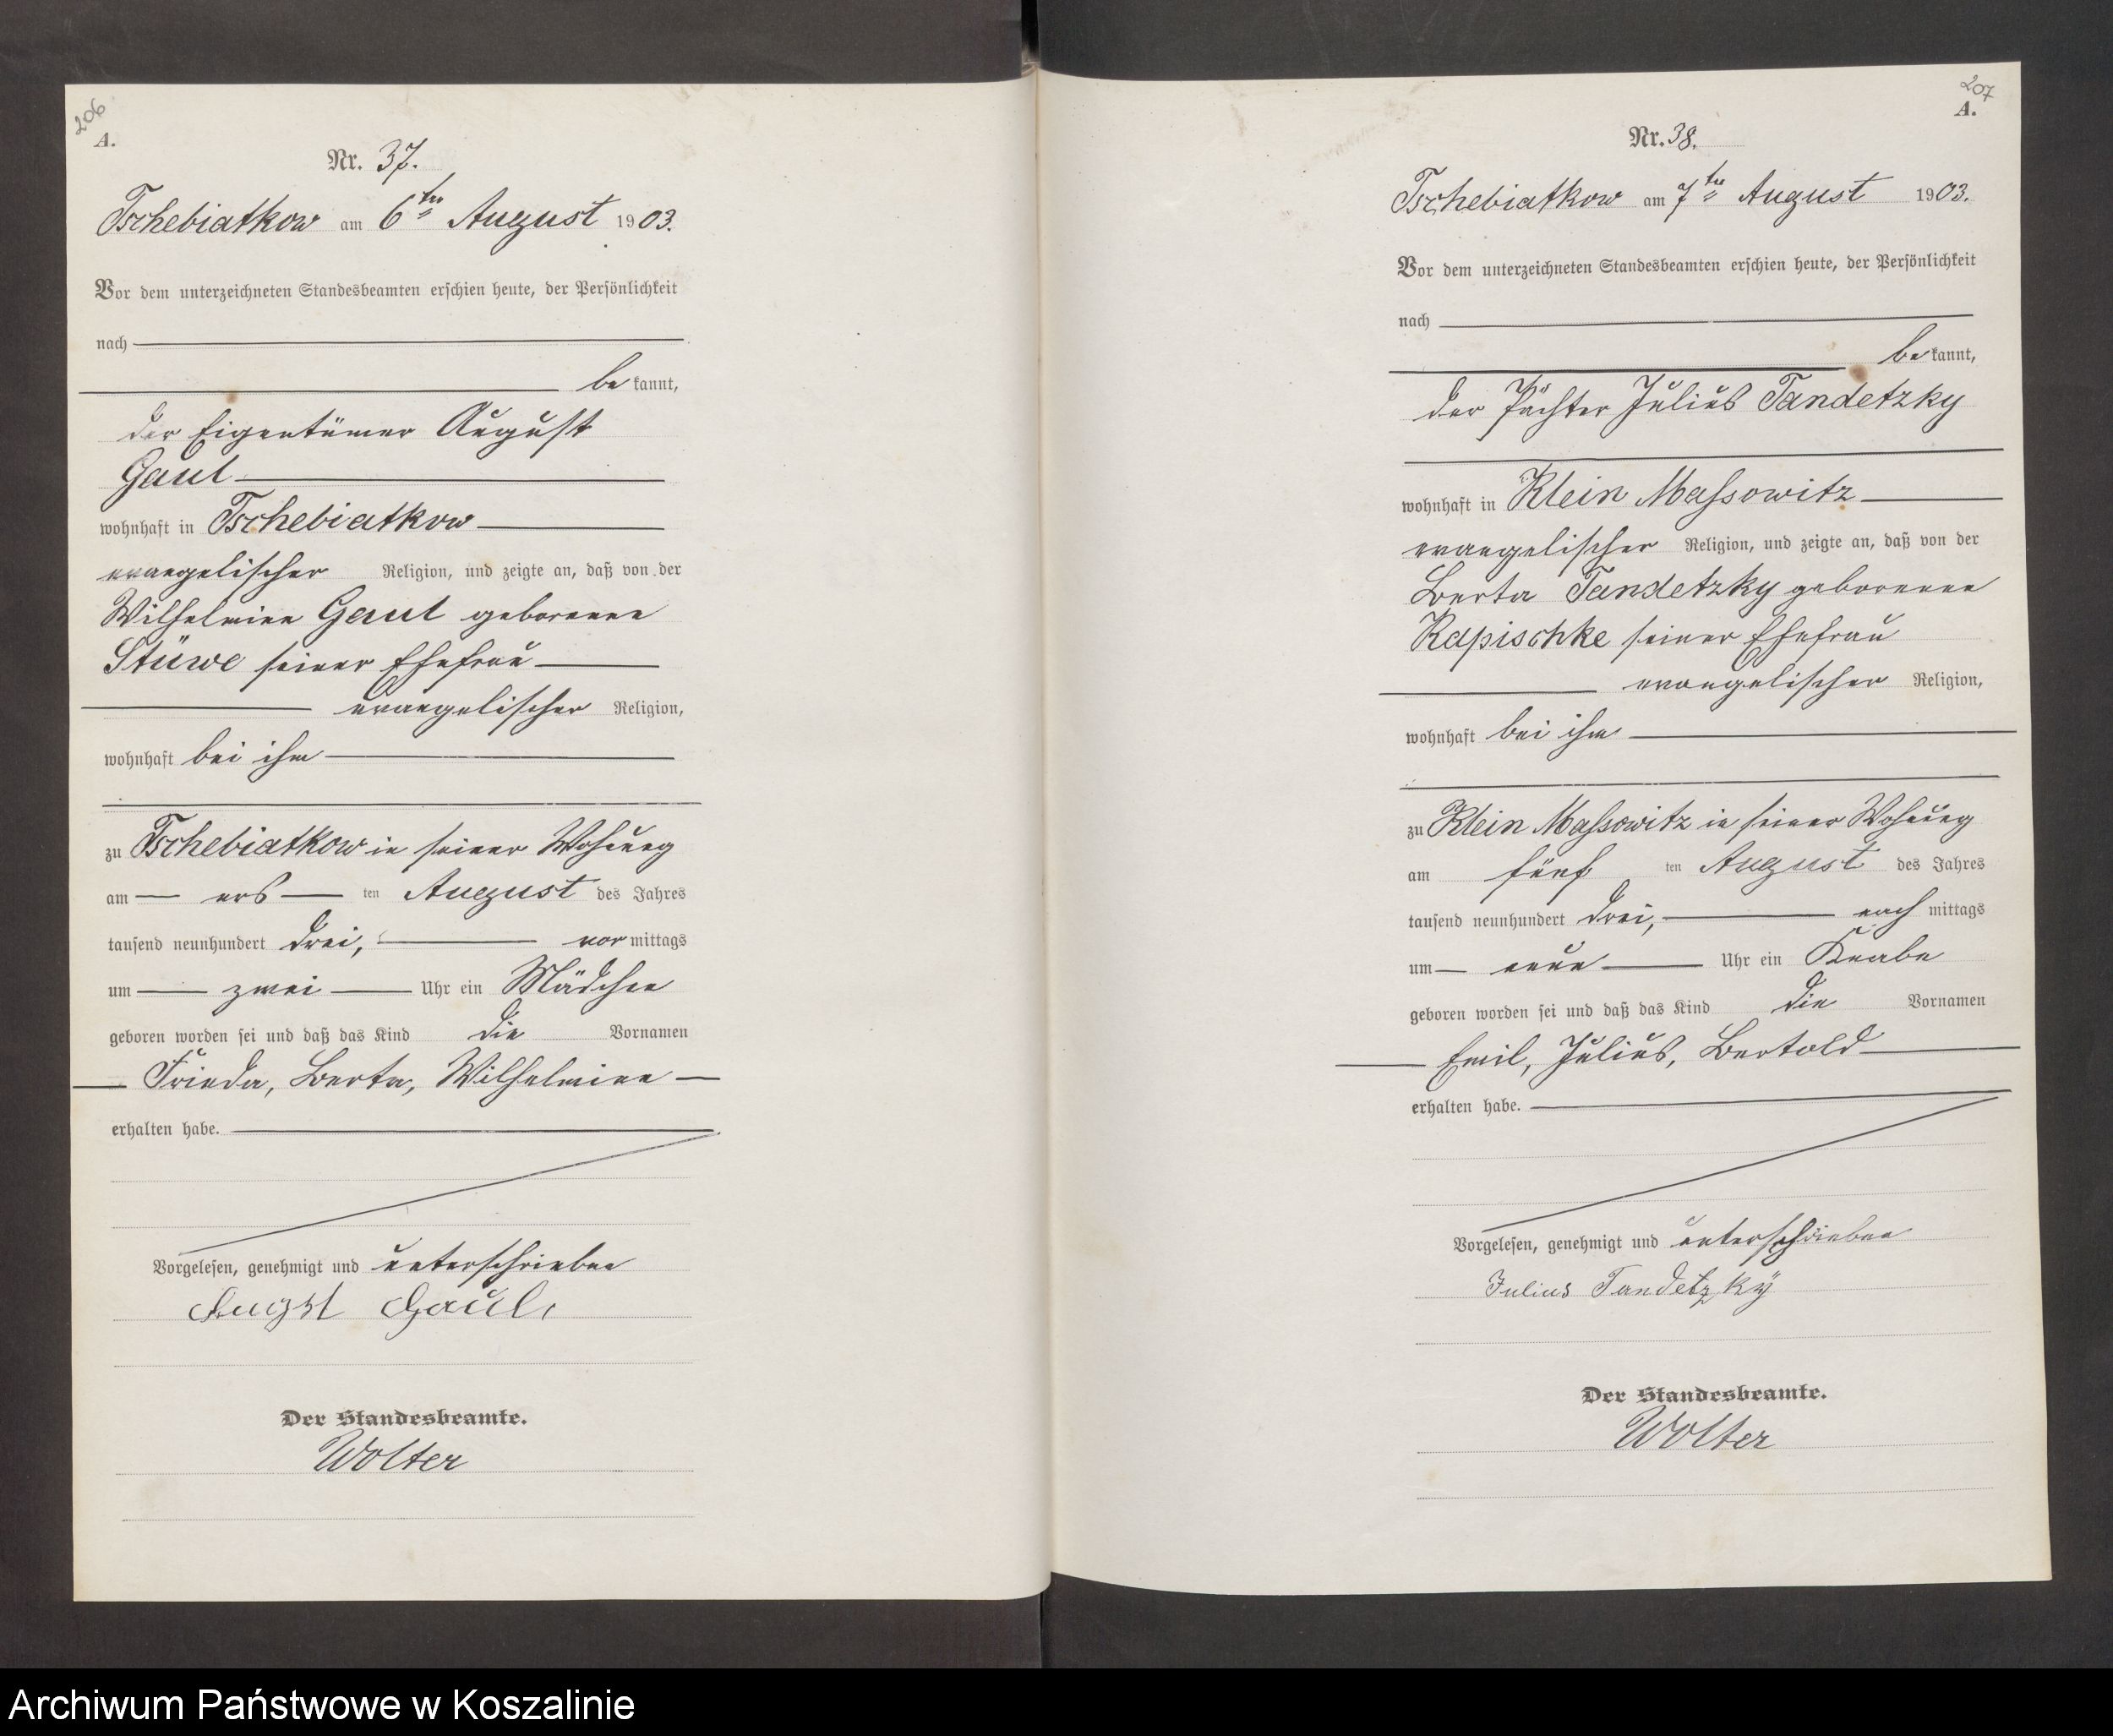 206
A.
Nr. 37.
Tschebiatkow am 6ten August 1903.
Vor dem unterzeichneten Standesbeamten erschien heute, der Persönlichkeit
nach
bekannt,
der Eigentümer August
Gaul
wohnhaft in Tschebiatkow
evangelischer Religion, und zeigte an, daß von der
Wilhelmine Gaul geborenen
Stüwe seiner Ehefrau
evangelischer Religion,
wohnhaft bei ihm
zu Tschebiatkow in seiner Wohnung
am ers ten August des Jahres
tausend neunhundert drei, vormittags
um zwei Uhr ein Mädchen
geboren worden sei und daß das Kind die Vornamen
Frieda, Berta, Wilhelmine
erhalten habe.
Vorgelesen, genehmigt und unterschrieben
Augst Gaul,
Der Standesbeamte.
Wolter
207
A.
Nr. 38.
Tschebiatkow am 7ten August 1903.
Vor dem unterzeichneten Standesbeamten erschien heute, der Persönlichkeit
nach
bekannt,
der Pächter Julius Tandetzky
wohnhaft in Klein Massowitz
evangelischer Religion, und zeigte an, daß von der
Berta Tandetzky geborenen
Rapischke seiner Ehefrau
evangelischer Religion,
wohnhaft bei ihm
zu Klein Massowitz in seiner Wohnung
am fünf ten August des Jahres
tausend neunhundert drei, nachmittags
um neun Uhr ein Knabe
geboren worden sei und daß das Kind die Vornamen
Emil, Julius, Bertold
erhalten habe.
Vorgelesen, genehmigt und unterschrieben
Julius Tandetzky
Der Standesbeamte.
Wolter
Archiwum Państwowe w Koszalinie